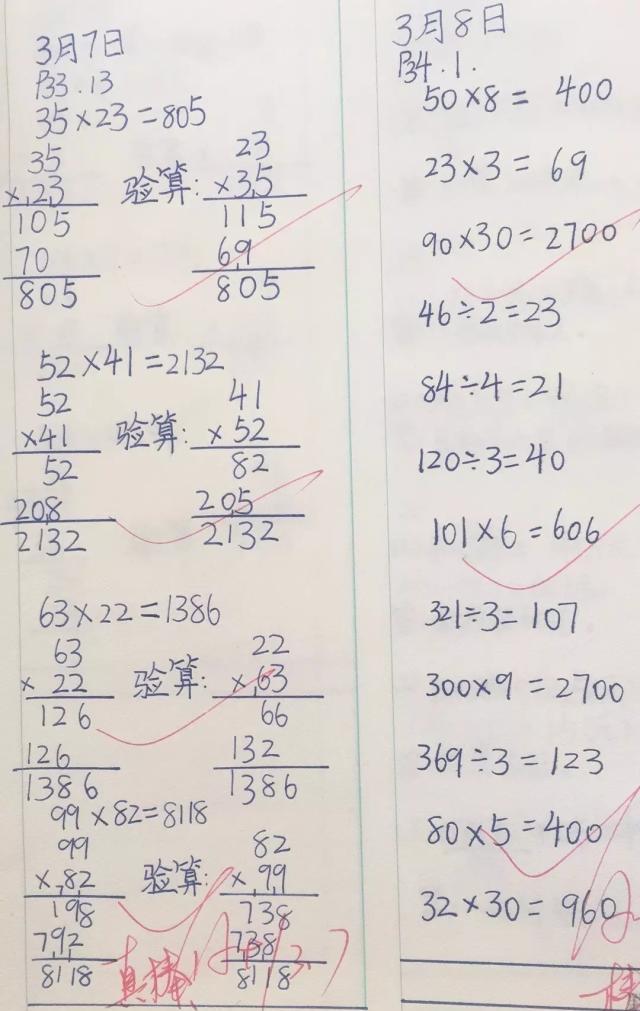 3月7日
P33.13
35×23=805
35
×23
105
70
805
验算:
23
×35
115
69
805
52×41=2132
52
×41
52
208
2132
验算:
41
×52
82
205
2132
63×22=1386
63
×22
126
126
1386
验算:
22
×63
66
132
1386
99×82=8118
99
×82
198
792
8118
验算:
82
×99
738
738
8118
真棒
3月8日
P34.1.
50×8=400
23×3=69
90×30=2700
46÷2=23
84÷4=21
120÷3=40
101×6=606
321÷3=107
300×9=2700
369÷3=123
80×5=400
32×30=960